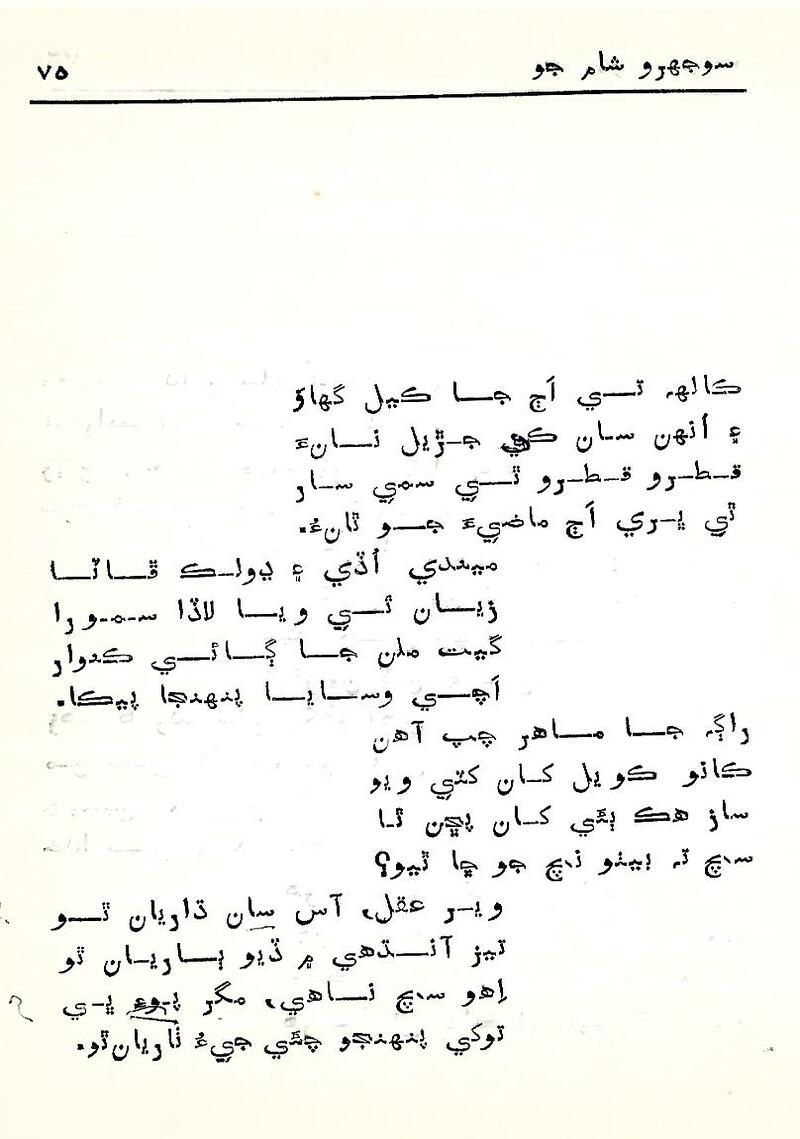 سوجهرو شام جو
۷۵
ڪالهہ تي اَڄ جا ڪيل گهاوَ
۽ اُنهن سان ڪي جڙيل نانءَ
قطرو قطرو ٿي سمي سار
ٿي ڀري اَڄ ماضيءَ جو ٿانءُ.
ميندي اُڏي ۽ ڍولڪ ڦاٽا
زيان ٿي ويا لاڏا سمورا
گيت ملن جا ڳائي ڪنوار
اَچي وسايا پنهنجا پيڪا.
راڳہ جا ماهر چپ آهن
ڪانو ڪويل کان کٽي ويو
ساز هڪ ٻئي کان پڇن ٿا
سچ تہ ٻيٺو نچ جو ڇا ٿيو؟
وير عقل، آس سان ڌاريان ٿو
تيز آنڌهي ۾ ڏيو ٻاريان ٿو
اِهو سچ ناهي، مگر پوءِ ڀي
توکي پنهنجو چئي جيءُ ٺاريان ٿو.